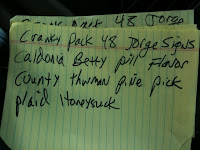 Pack 48 Jorge
Cranky Pack 48 Jorge Signs
Caldonia Betty pill Flavor
County thurman give pick
plaid Honeysuck